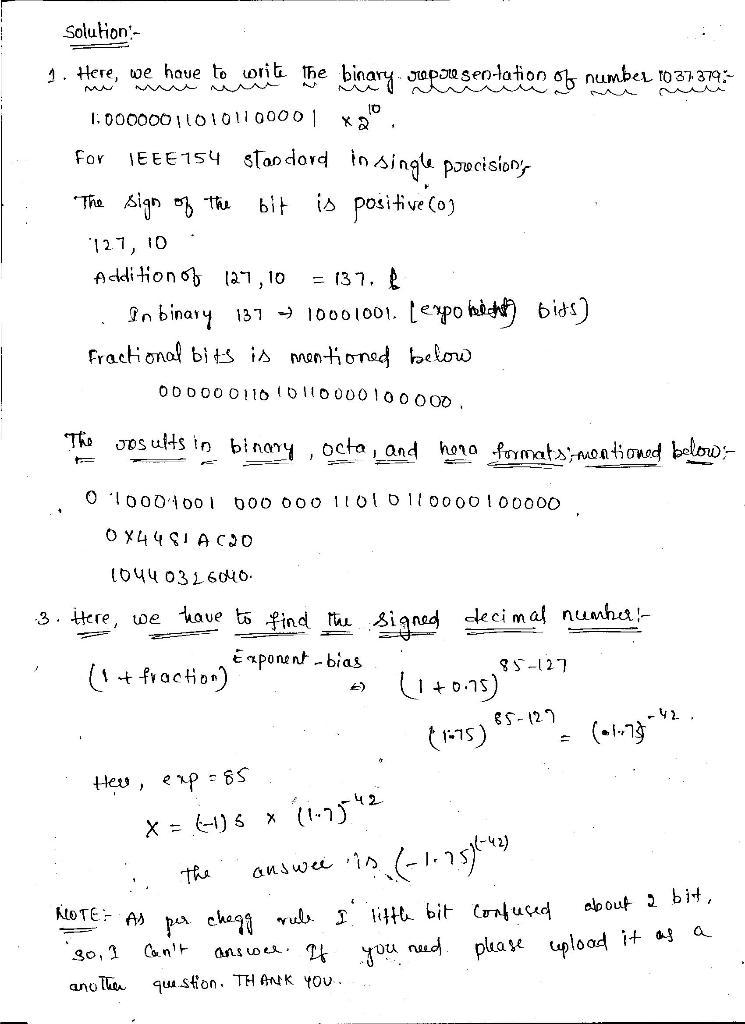 Solution:-
1. Here, we have to write the binary representation of number 1037379:-
1.00000011010110000 1 × 2^10 .
For IEEE754 standard in single precision:-
The sign of the bit is positive (0)
127, 10
Addition of 127, 10 = 137.
In binary 137 → 10001001. [exponent) bits)
Fractional bits is mentioned below
00000011010110000100000,
The results in binary, octa, and hexa formats; mentioned below:-
0 10001001 000 000 1101 0 110000 100000
0X4481AC20
10440326040.
3. Here, we have to find the signed decimal number:-
(1 + fraction)^Exponent-bias ⇔ (1 + 0.75)^85-127
(1.75)^85-127 = (1.75)^-42.
Here, exp = 85
X = (-1)s × (1.75)^-42
∴ the answer is (-1.75)^(-42)
NOTE:- As per chegg rule I little bit confused about 2 bit,
so, I can't answer. If you need please upload it as a
another question. THANK YOU.